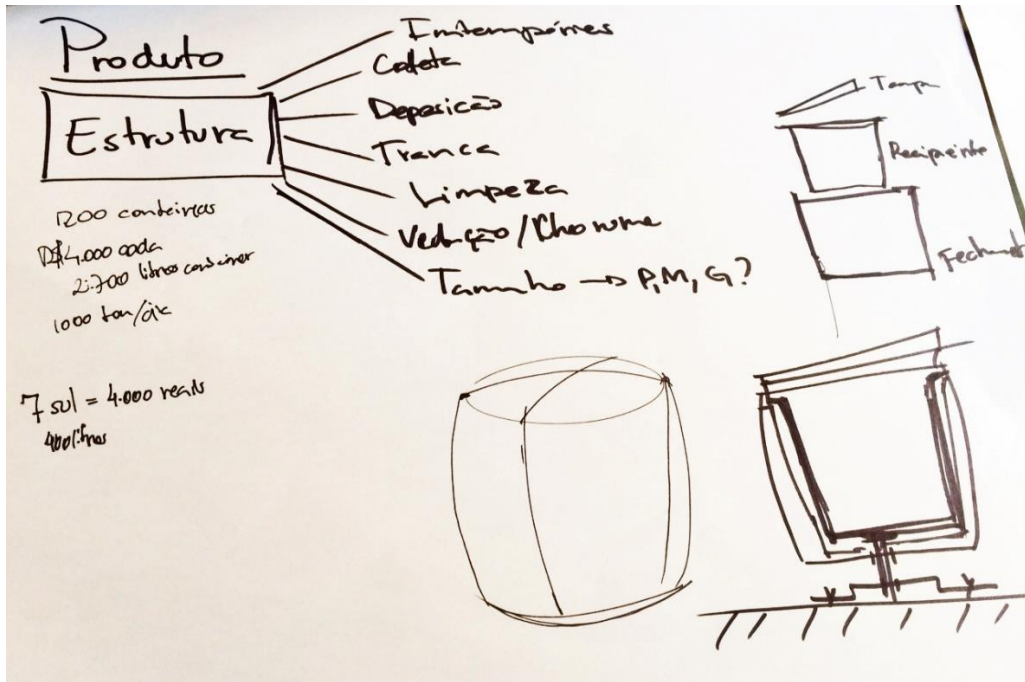 Produto
Estrutura
Intempéries
Coleta
Deposição
Tranca
Limpeza
Vedação/Chorume
Tamanho → P, M, G?
1200 conteineres
R$4.000 cada
2.700 litros container
1000 ton/dia
7 sul = 4.000 reais
400 litros
Tampa
Recipiente